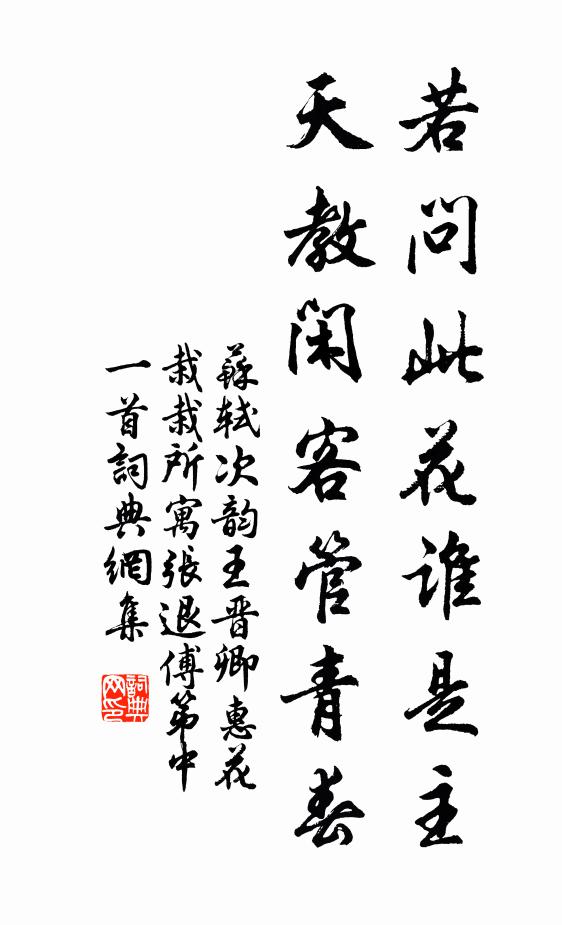 若問此花誰是主
天教閑客管青春
蘇軾次韵王晋卿惠花
栽栽所寓張退傅第中
一首詞典網集
詞典网印